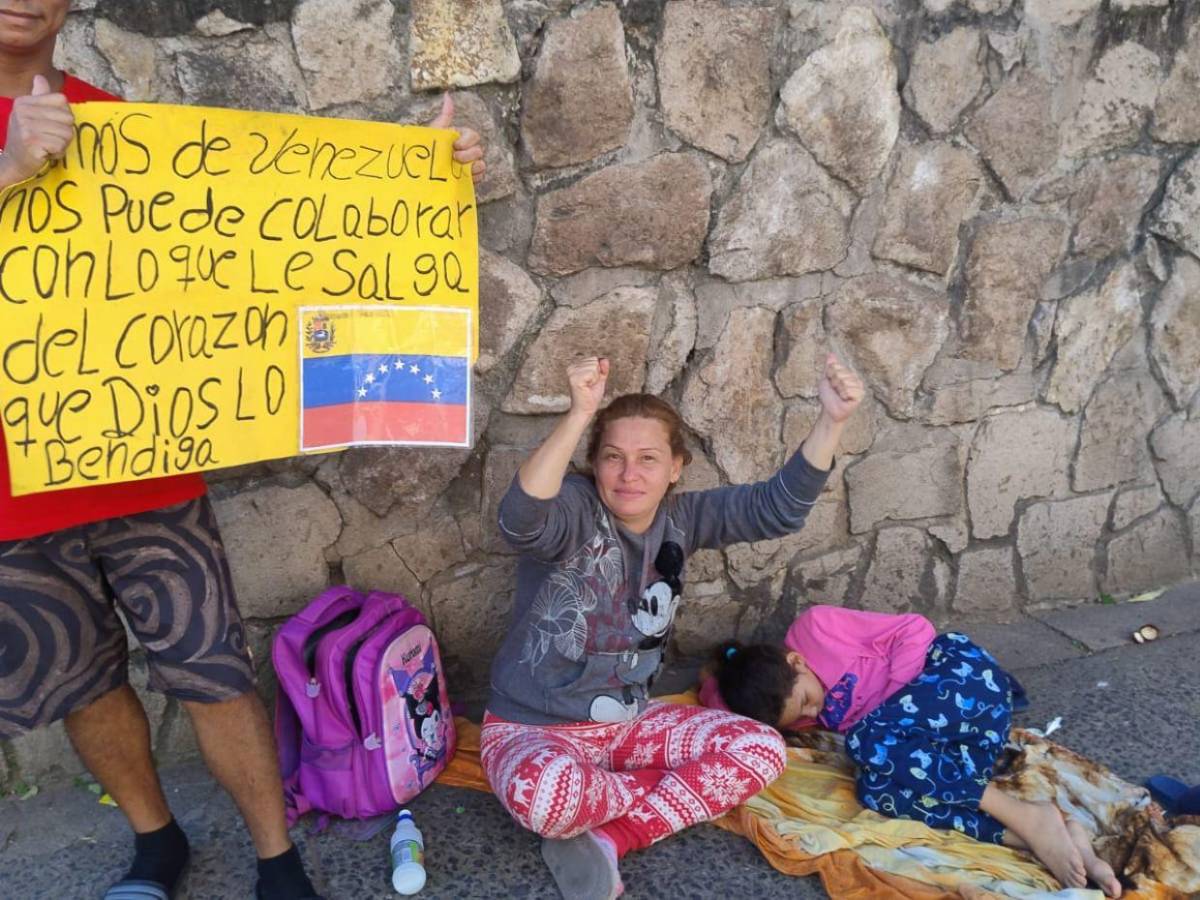 mos de Venezuela
nos Puede coLaborar
con Lo que Le SaLga
del corazon
que Dios LO
Bendiga